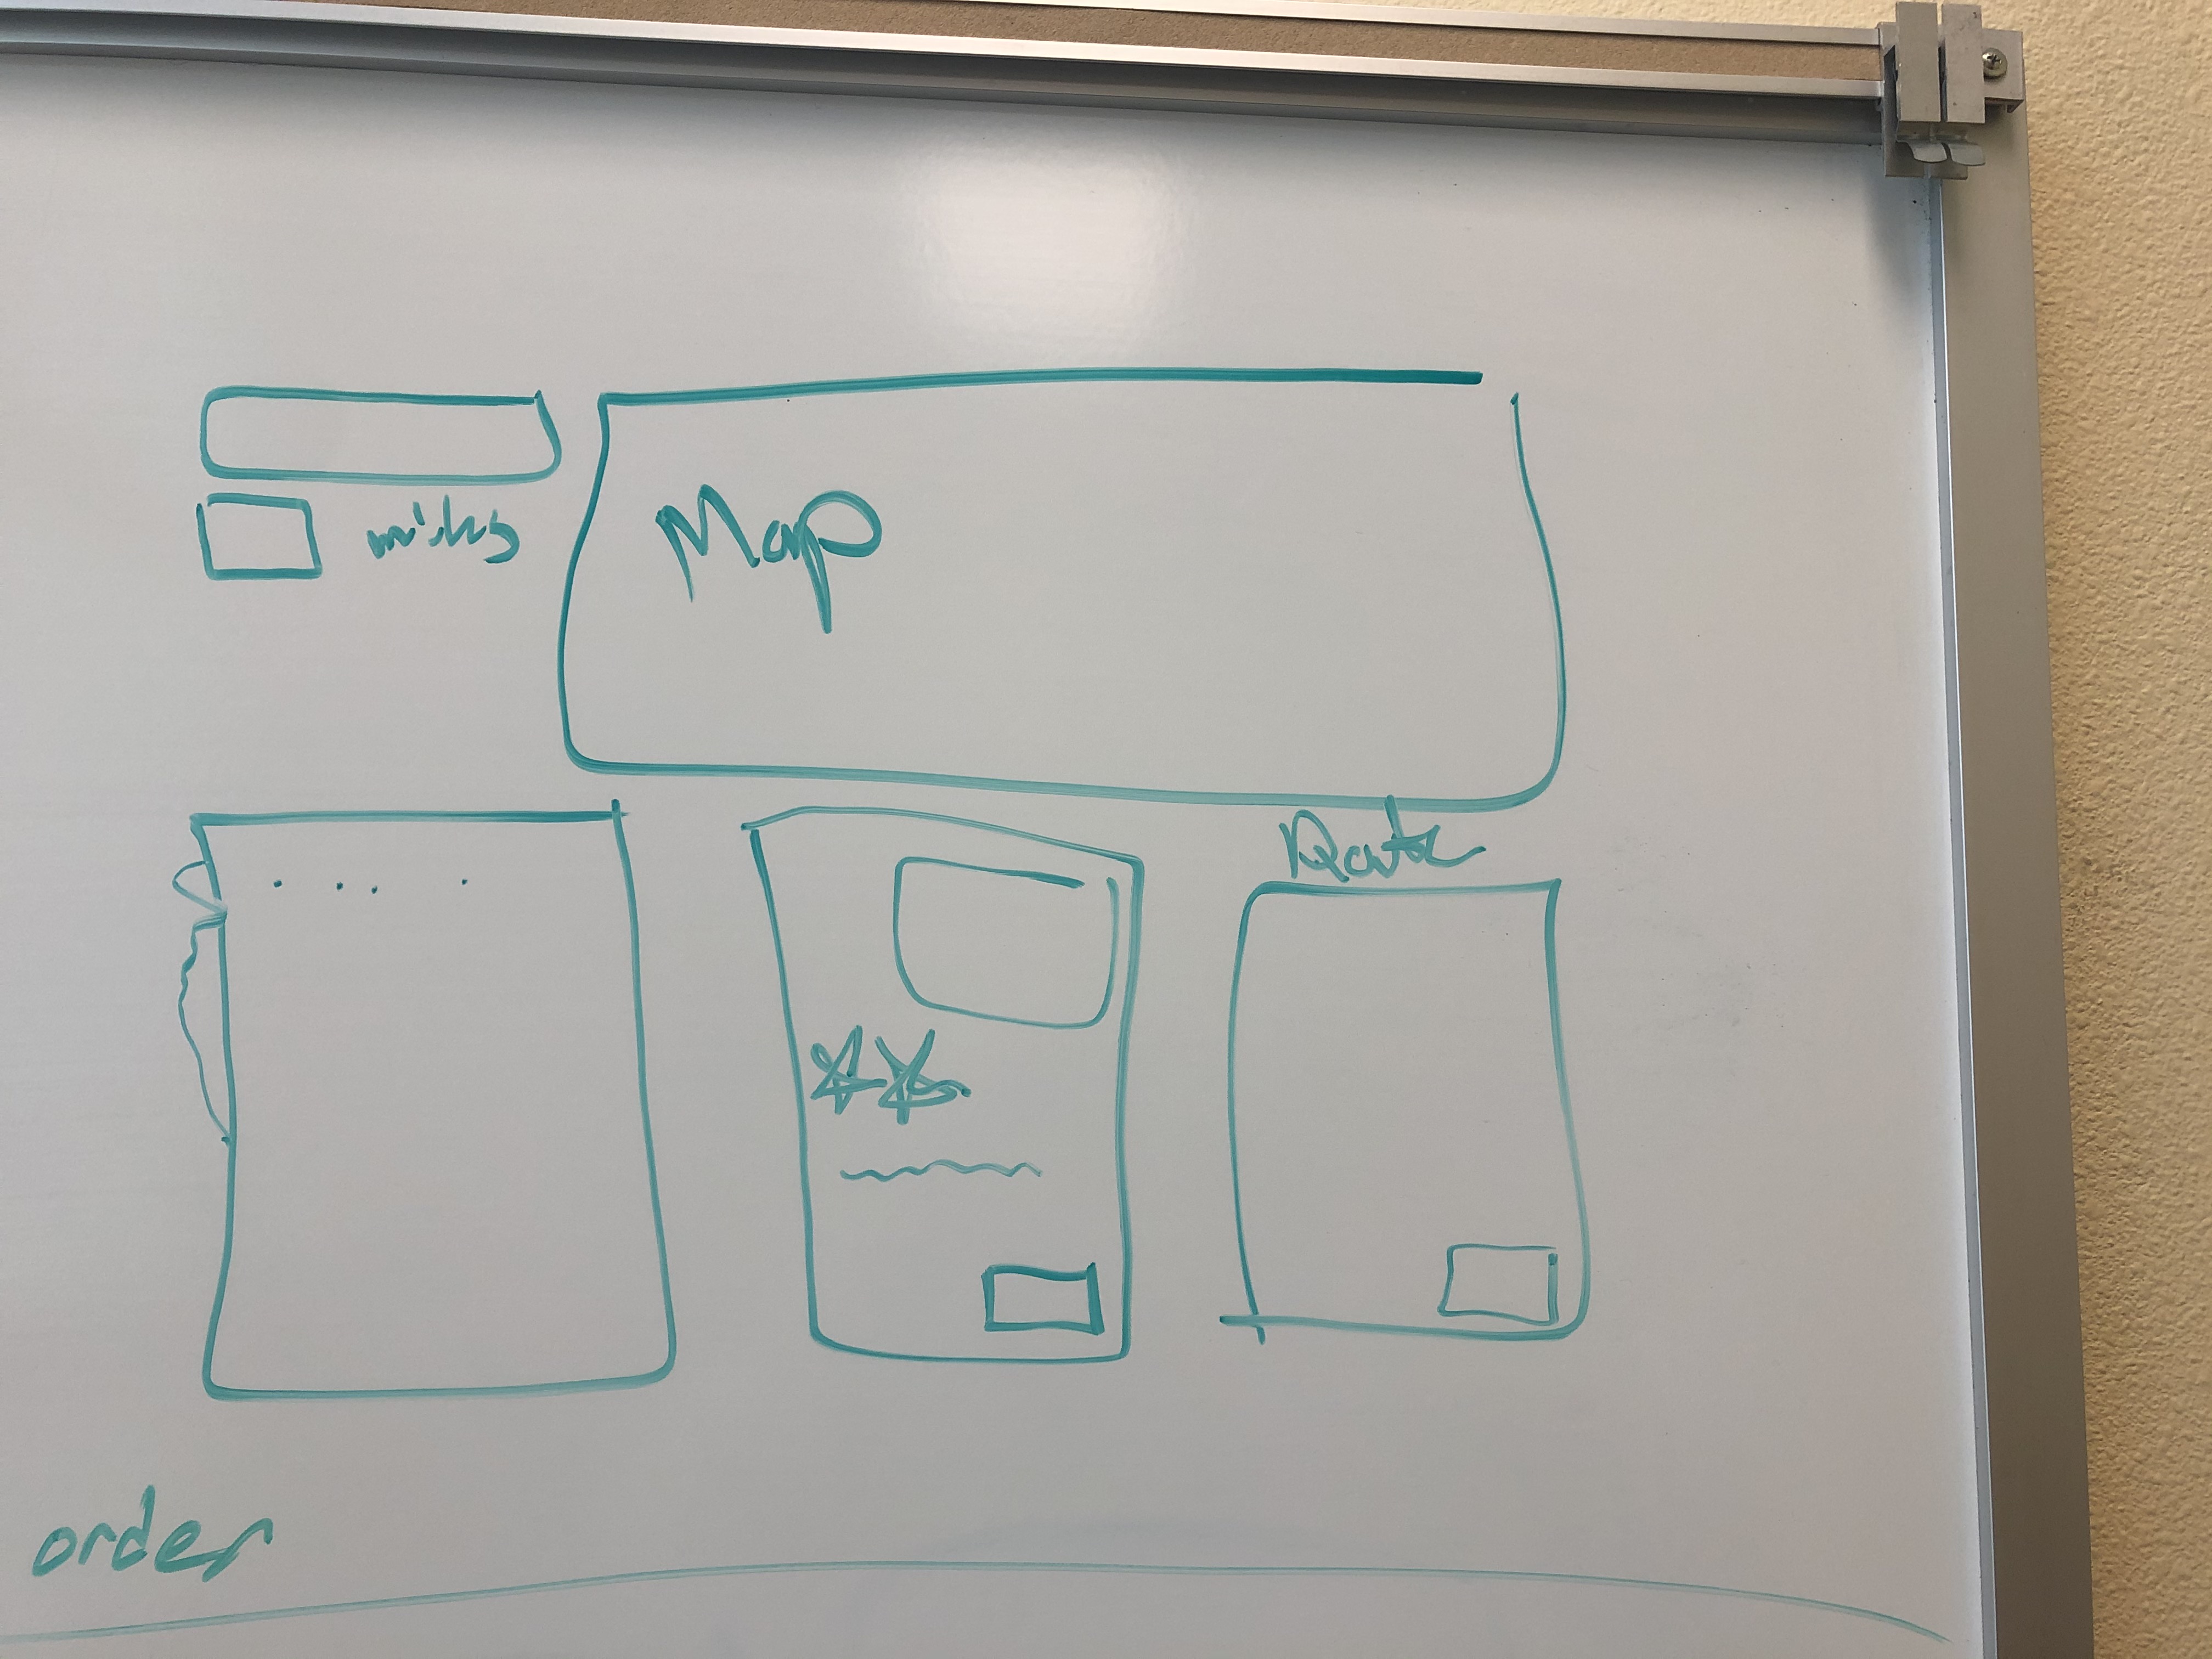 miles
Map
Route
order